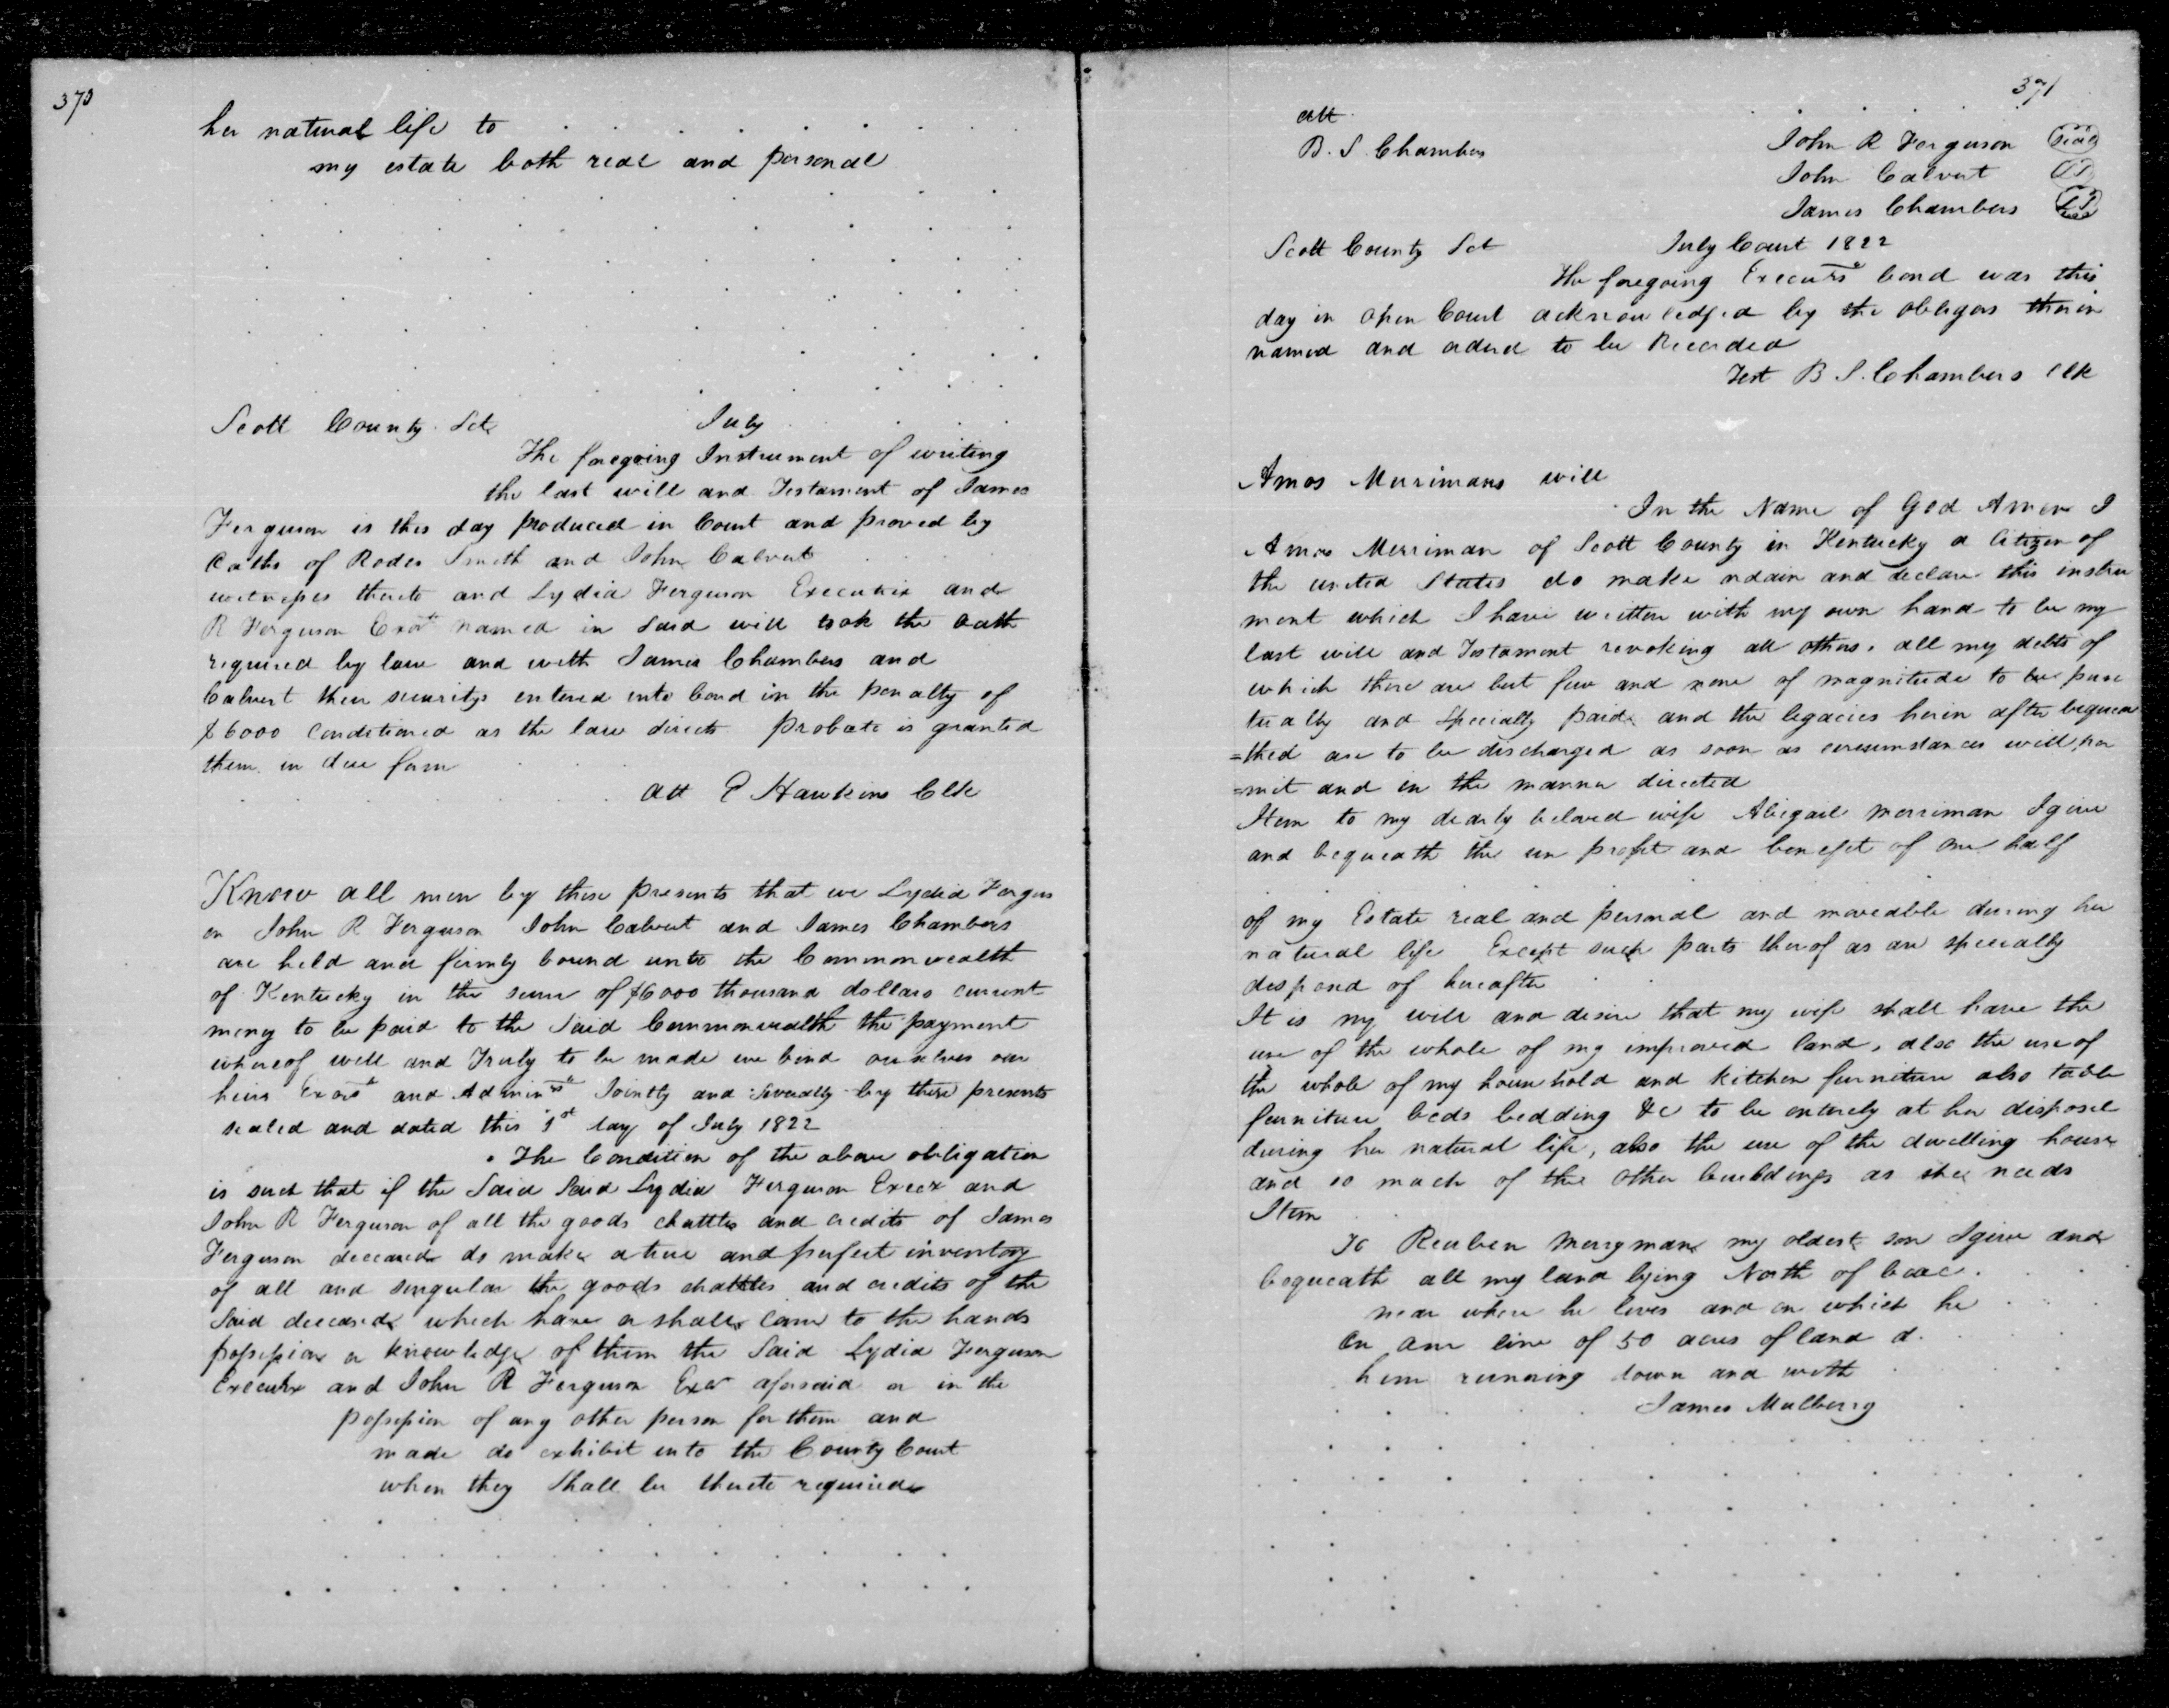 370
her natural life to . . . . . . . .
my estate both real and personal
Scott County Sct July
The foregoing Instrument of writing
the last will and Testament of James
Ferguson is this day produced in Court and proved by
Oaths of Rodes Smith and John Calvert
witnesses thereto and Lydia Ferguson Executrix and
R Ferguson Exor named in said will took the oath
required by law and with James Chambers and
Calvert their securitys entered into bond in the penalty of
$6000 conditioned as the law directs probate is granted
them in due form
Att Hawkins Clk
Know all men by these presents that we Lydia Fergus
on John R Ferguson John Calvert and James Chambers
are held and firmly bound unto the Commonwealth
of Kentucky in the sum of $6000 thousand dollars current
money to be paid to the Said Commonwealth the payment
whereof well and Truly to be made we bind ourselves our
heirs Exors and Adminrs Jointly and Severally by these presents
sealed and dated this 1st day of July 1822
The Condition of the above obligation
is such that if the Said Said Lydia Ferguson Execx and
John R Ferguson of all the goods chattles and credits of James
Ferguson deceased do make a true and perfect inventory
of all and singular the goods chattles and credits of the
Said deceased which have or shall come to the hands
possession or knowledge of them the Said Lydia Ferguson
Executrx and John R Ferguson Exor aforesaid or in the
possession of any other person for them and
made do exhibit into the County Court
when they shall be thereto required
371
att
B. S. Chambers John R Ferguson Seal
John Calvert
James Chambers
Scott County Sct July Court 1822
The foregoing Executrs bond was this
day in open Court acknowledged by the obligors therein
named and orderd to be Recorded
Test B S. Chambers Clk
Amos Merrimans will
In the Name of God Amen I
Amos Merriman of Scott County in Kentucky a Citizen of
the united States do make ordain and declare this instru
ment which I have written with my own hand to be my
last will and Testament revoking all others. all my debts of
which there are but few and none of magnitude to be punc
tually and Specially paid and the legacies herein after bequea
=thed are to be discharged as soon as circumstances will per
=mit and in the manner directed
Item to my dearly beloved wife Abigail Merriman I give
and bequeath the use profit and benefit of one half
of my Estate real and personal and moveable during her
natural life Except such parts therof as are specially
desposed of hereafter
It is my will and desire that my wife shall have the
use of the whole of my improved land, also the use of
the whole of my household and kitchen furniture also table
furniture beds bedding &c to be entirely at her disposel
during her natural life, also the use of the dwelling house
and so much of the other buildings as she needs
Item
To Reuben Merryman my oldest son I give and
bequeath all my land lying North of
near where he lives and on which he
line of 50 acres of land
him running down and with
James Mulberry